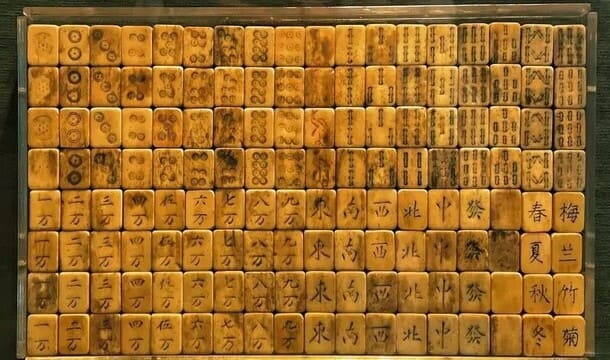 一万 二万 三万 四万 伍万 六万 七万 八万 九万 東 南 西 北 中 發 春 梅
一万 二万 三万 四万 伍万 六万 七万 八万 九万 東 南 西 北 中 發 夏 兰
二万 三万 四万 伍万 六万 七万 八万 九万 東 南 西 北 中 發 秋 竹
一万 二万 三万 四万 伍万 六万 七万 八万 九万 東 南 西 北 中 發 冬 菊